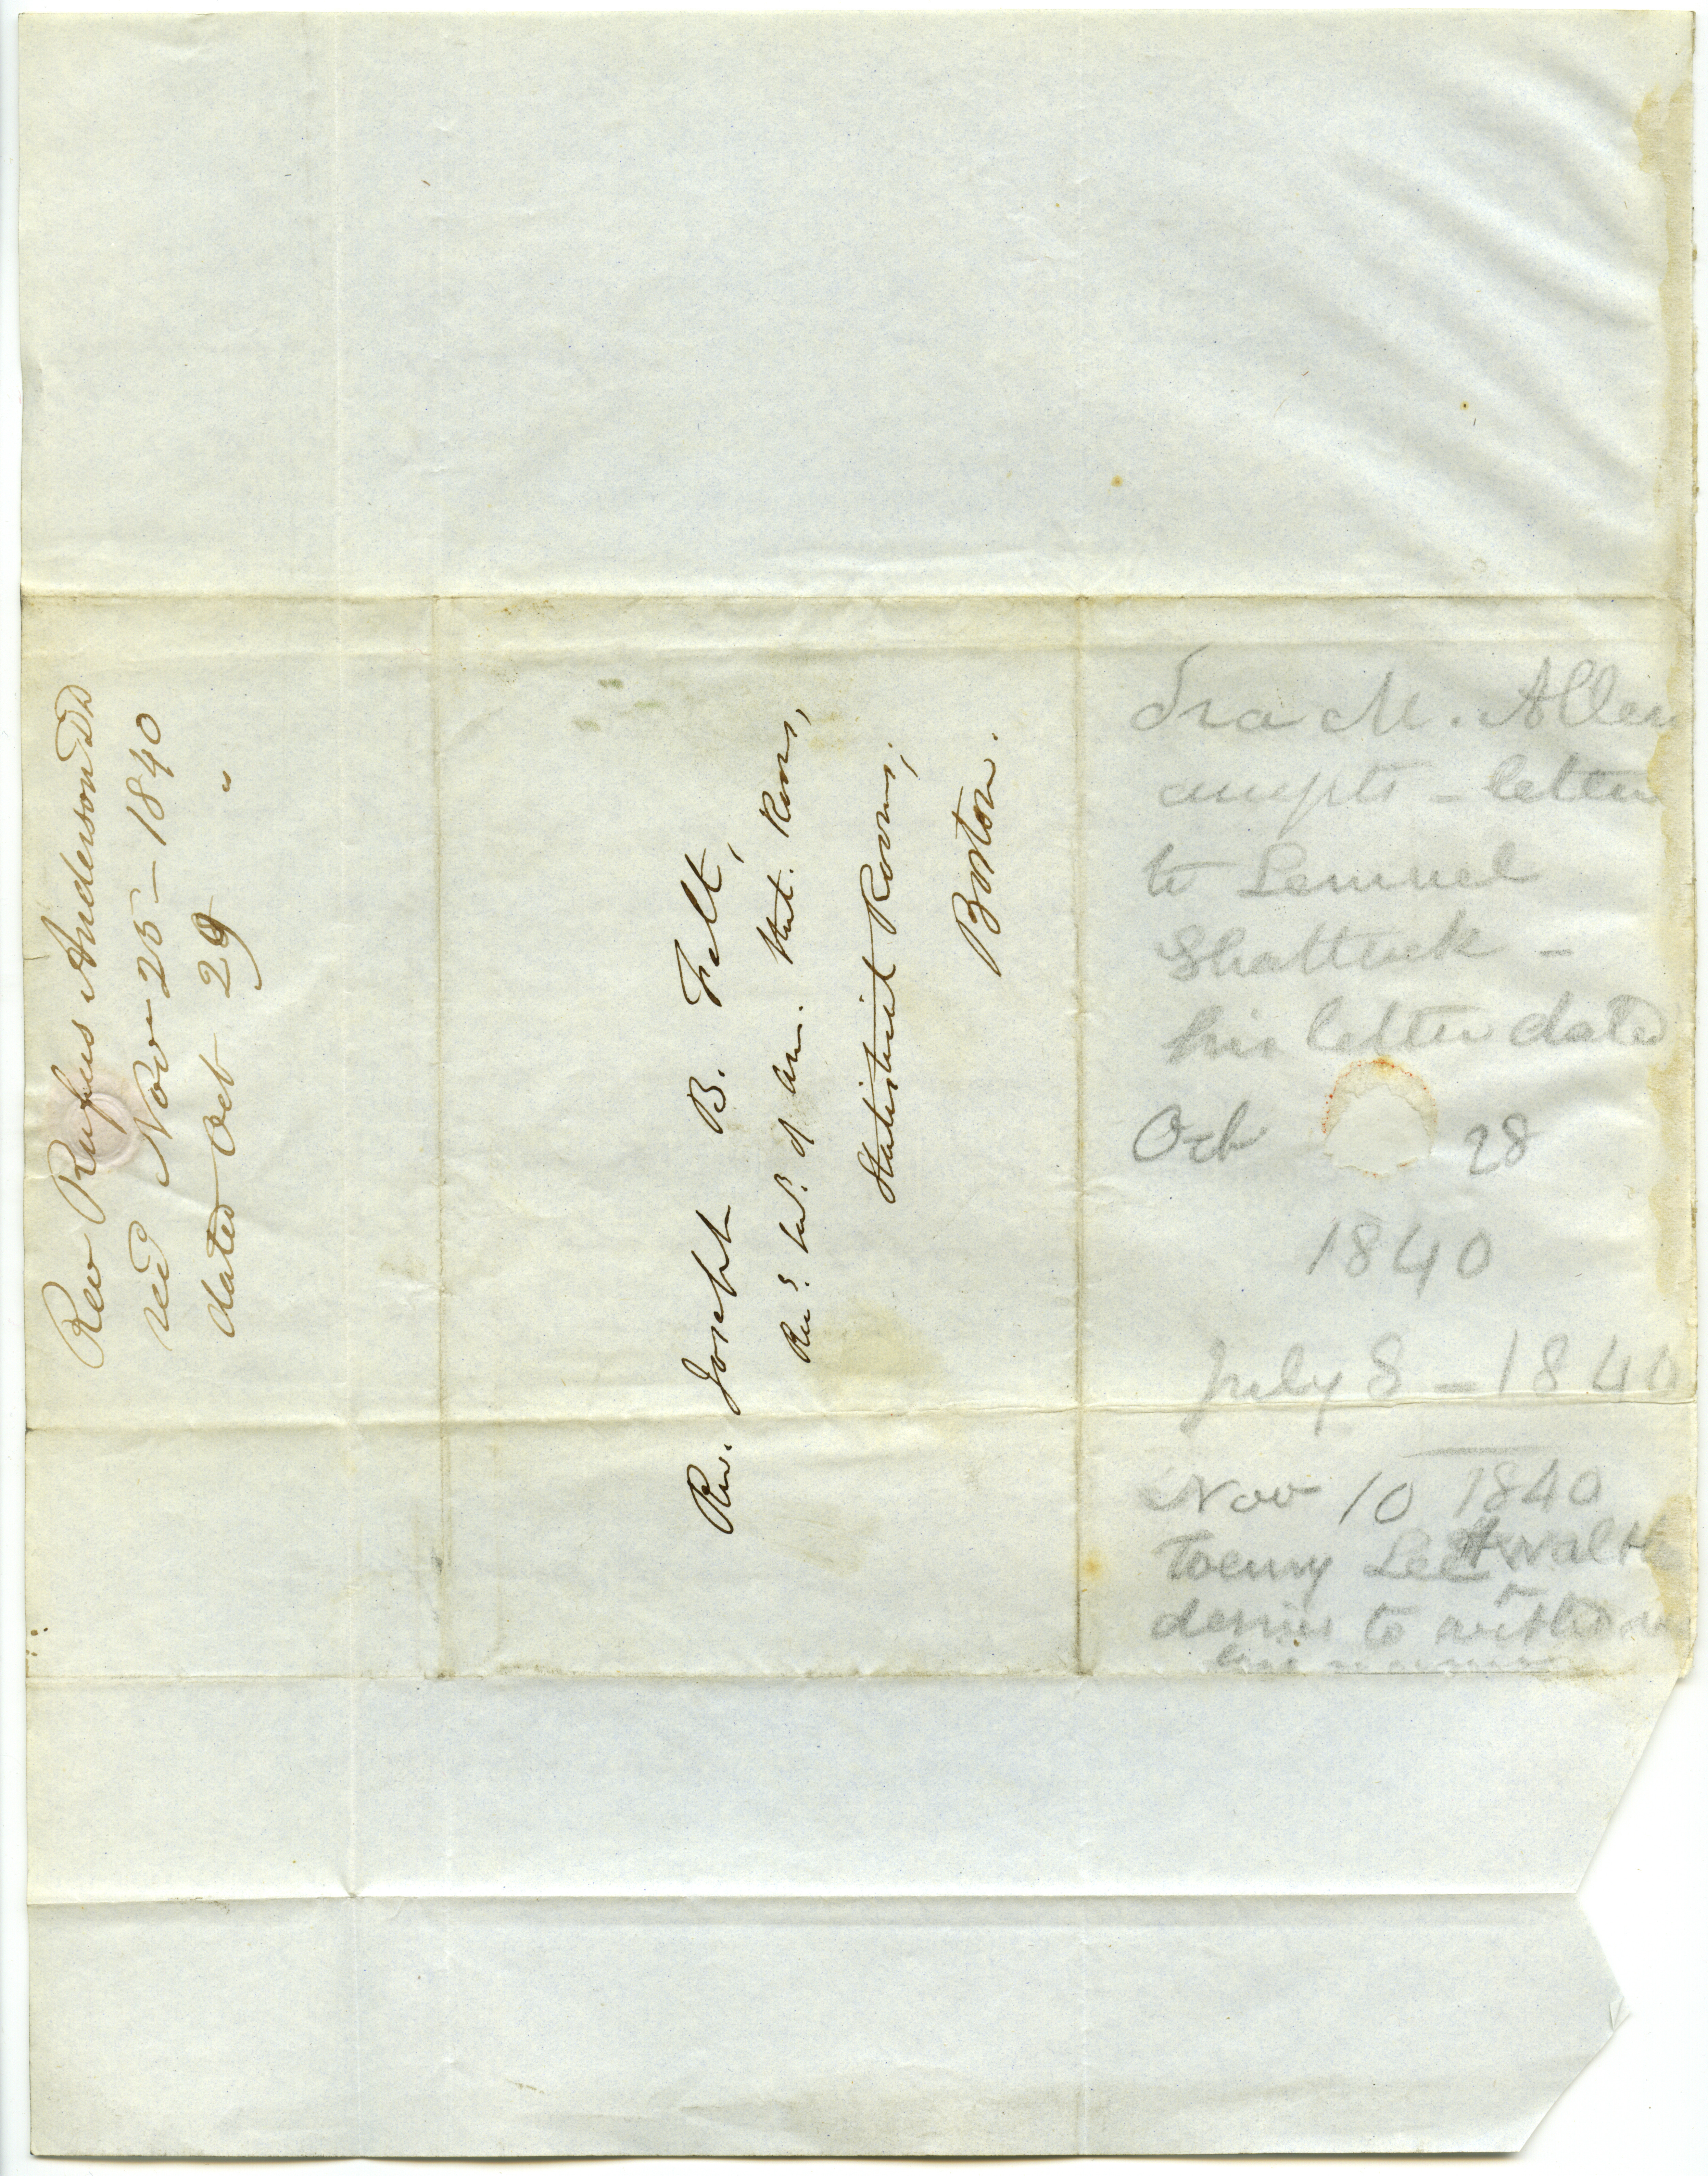 Rev Rufus Anderson DD
recd Nov 25 - 1840
dated Oct 29 "
Rev. Joseph B. Felt,
Rec. S. of Am. Stat. Rooms,
Statistical Rooms,
Boston.
Ira M. Allen
accepts - letter
to Lemuel
Shattuck -
his letter dated
Oct 28
1840
July 8 - 1840
Nov 10 1840
Lee
desires to withdraw
his name